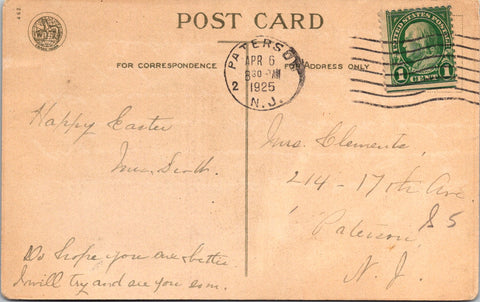 POST CARD
FOR CORRESPONDENCE
FOR ADDRESS ONLY
PATERSON
APR 6
830 PM
1925
N.J.
2
UNITED STATES POSTAGE
1 CENT 1
Happy Easter
Mrs.
Do hope you are better
I will try and see you soon.
Mrs. Clements,
214-17th Ave
Paterson
N. J.